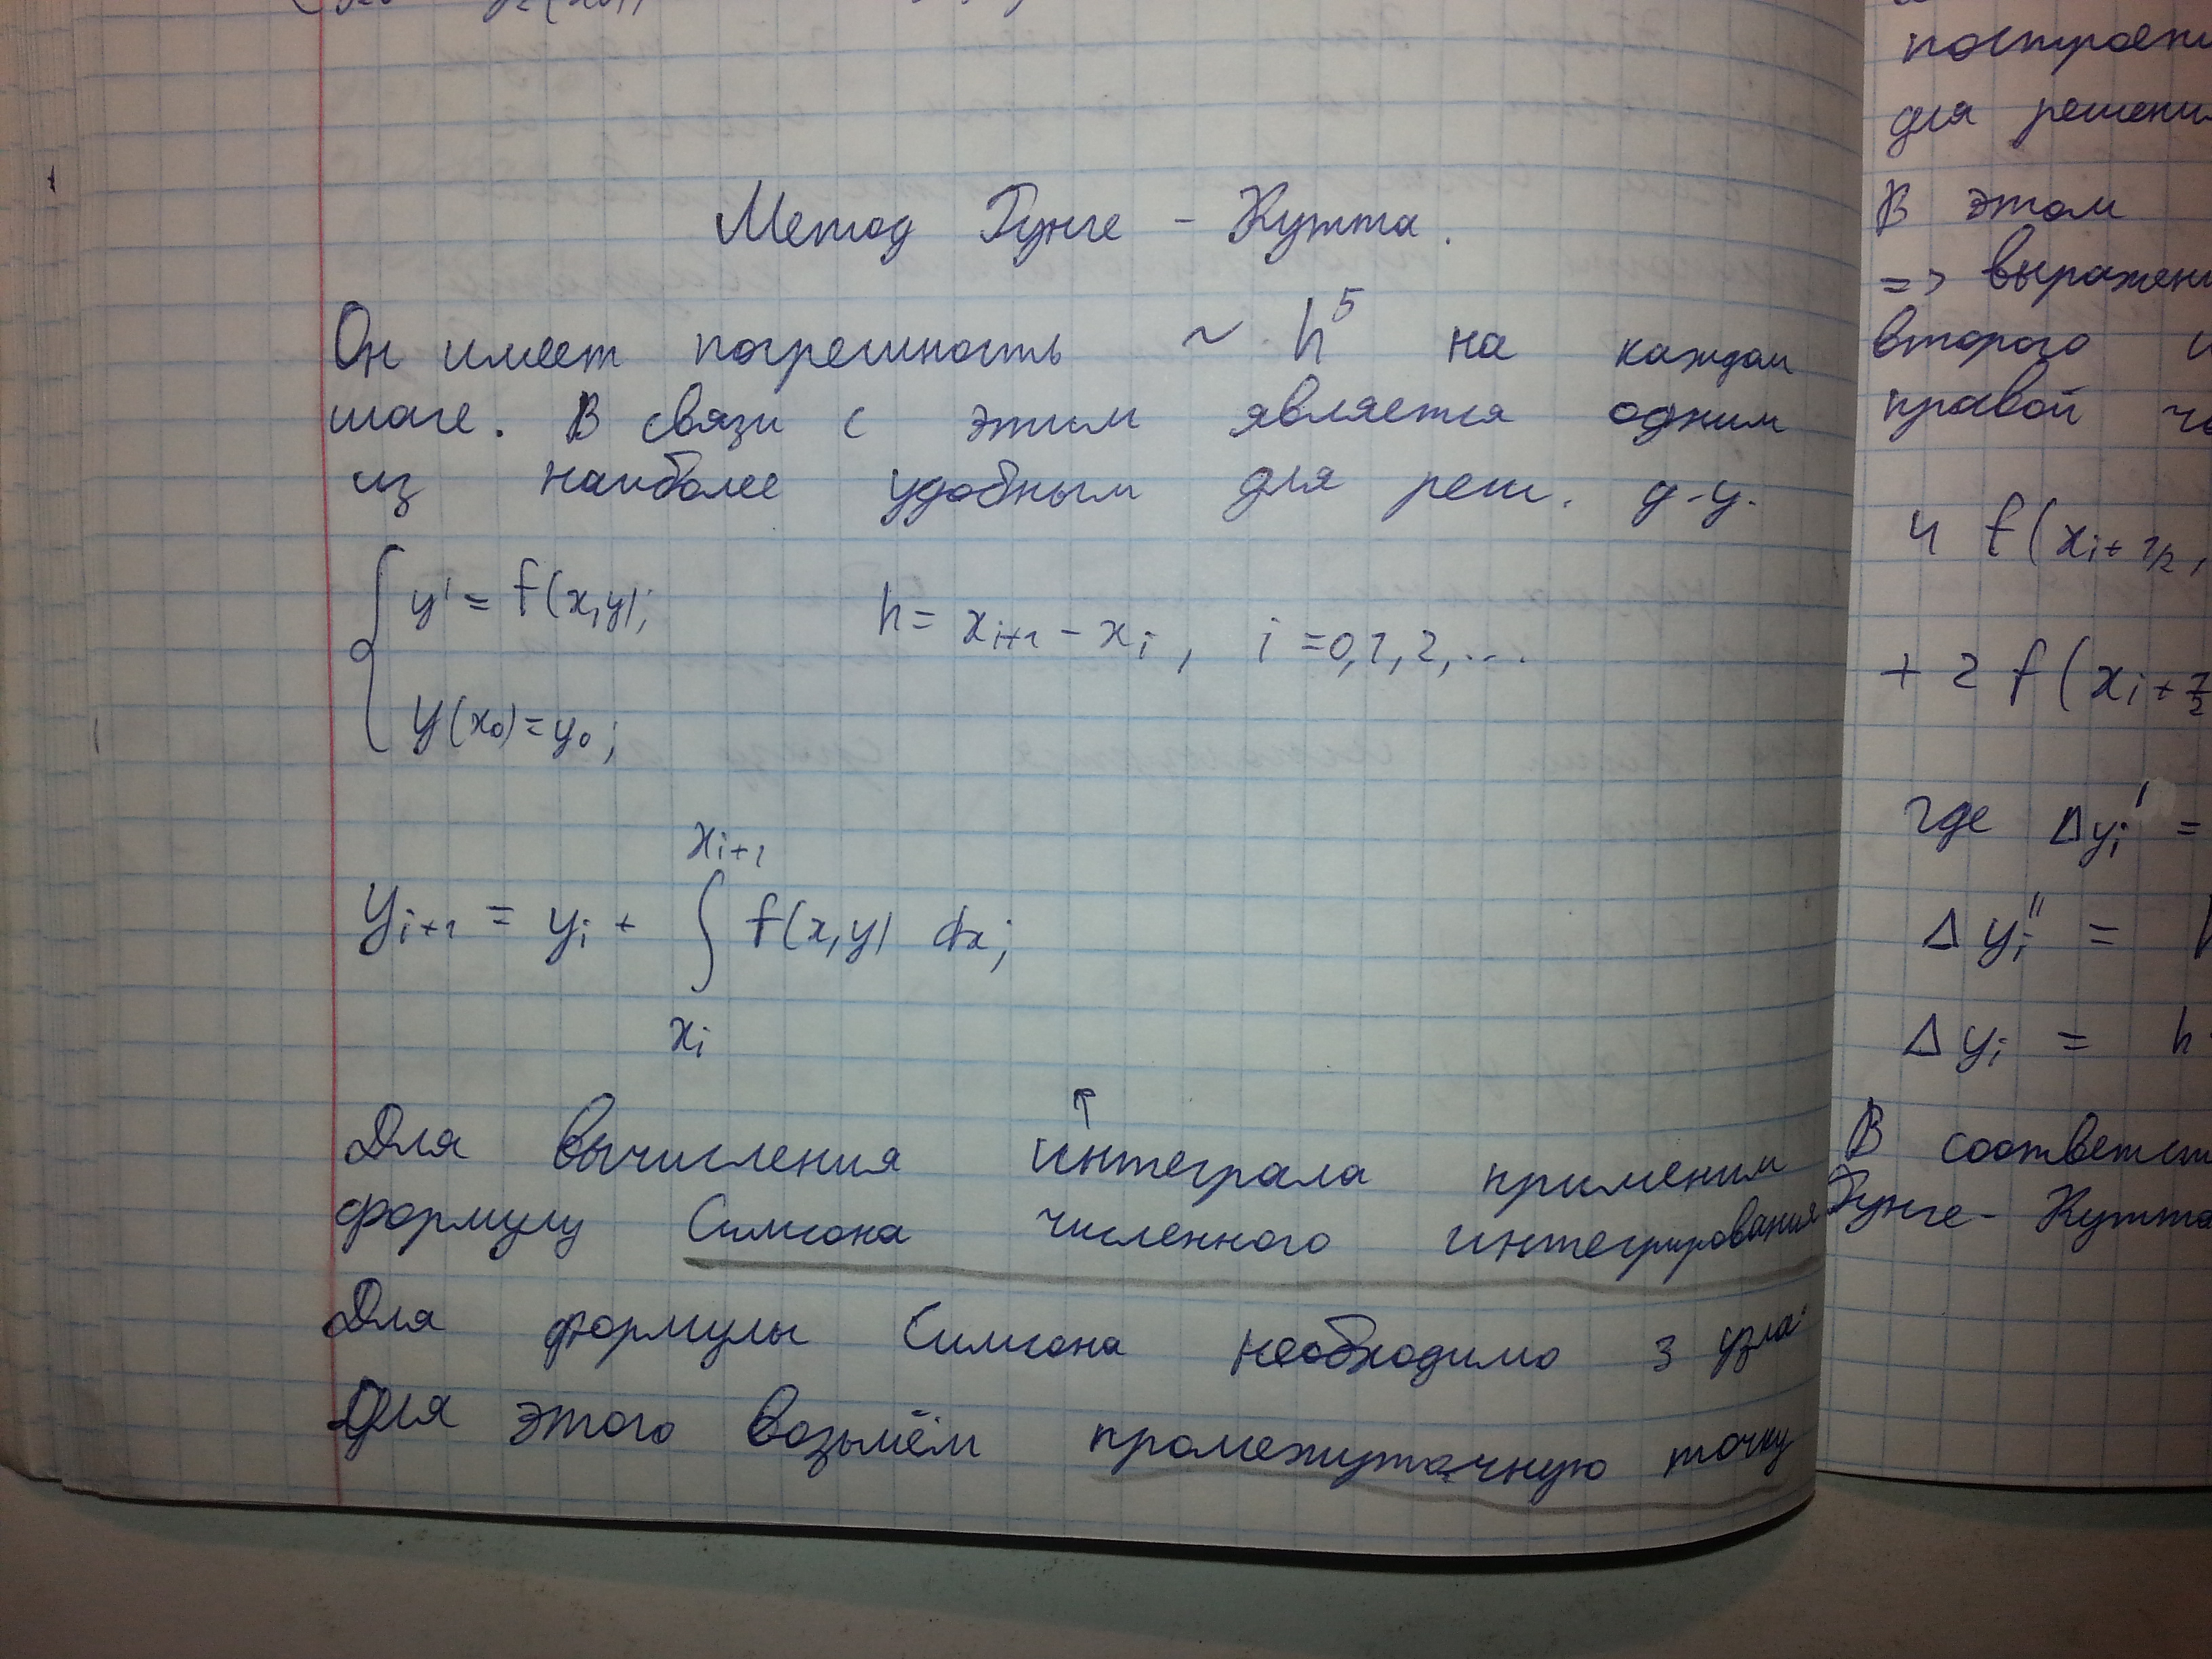 Метод Рунге - Кутта.
Он имеет погрешность ~ h⁵ на каждом
шаге. В связи с этим является одним
из наиболее удобным для реш. д.у.
y' = f(x,y);
h = xᵢ₊₁ - xᵢ, i = 0,1,2,...
y(x₀) = y₀;
yᵢ₊₁ = yᵢ + ∫ f(x,y) dx;
xᵢ₊₁
xᵢ
↑
Для вычисления интеграла применим
формулу Симсона численного интегрирования
Для формулы Симсона необходимо 3 узла.
Для этого возьмём промежуточную точку
для
В этом
=> 
второго
правой
4 f(xᵢ₊₁/₂,
+ 2 f(xᵢ₊₁/₂
где Δyᵢ' =
Δyᵢ'' =
Δyᵢ = h
В
Рунге - Кутта